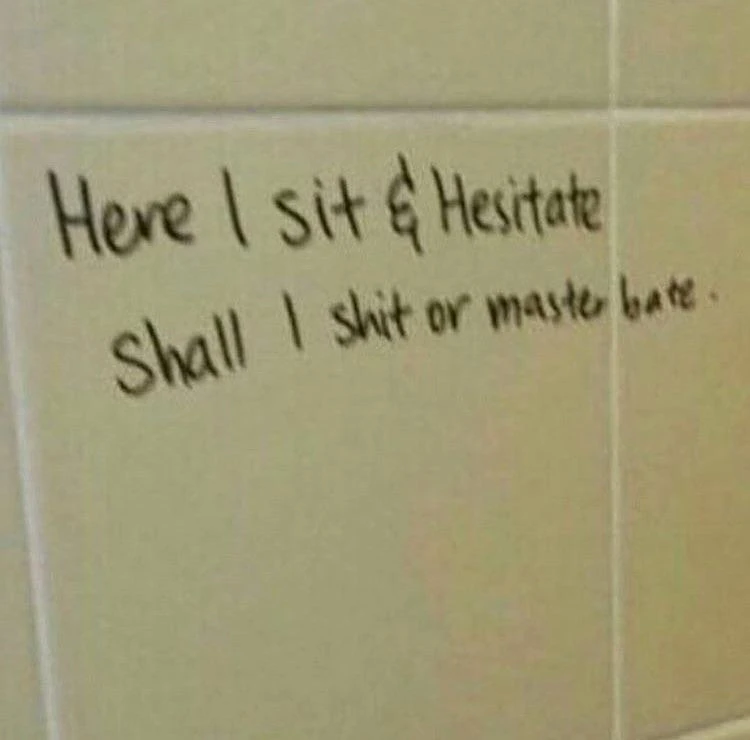 Here I sit & Hesitate
Shall I shit or masterbate.